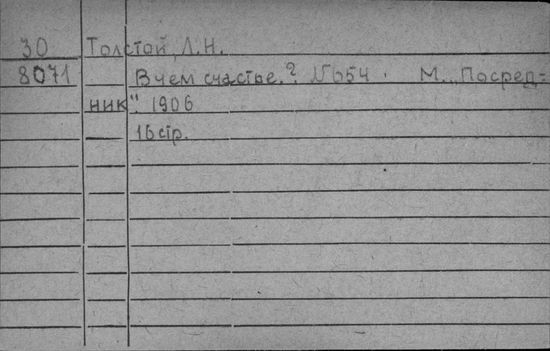 30 Толстой, Л.Н.
8071 В чем счастье.? №654. М. „Посред=
ник". 1906
16 стр.